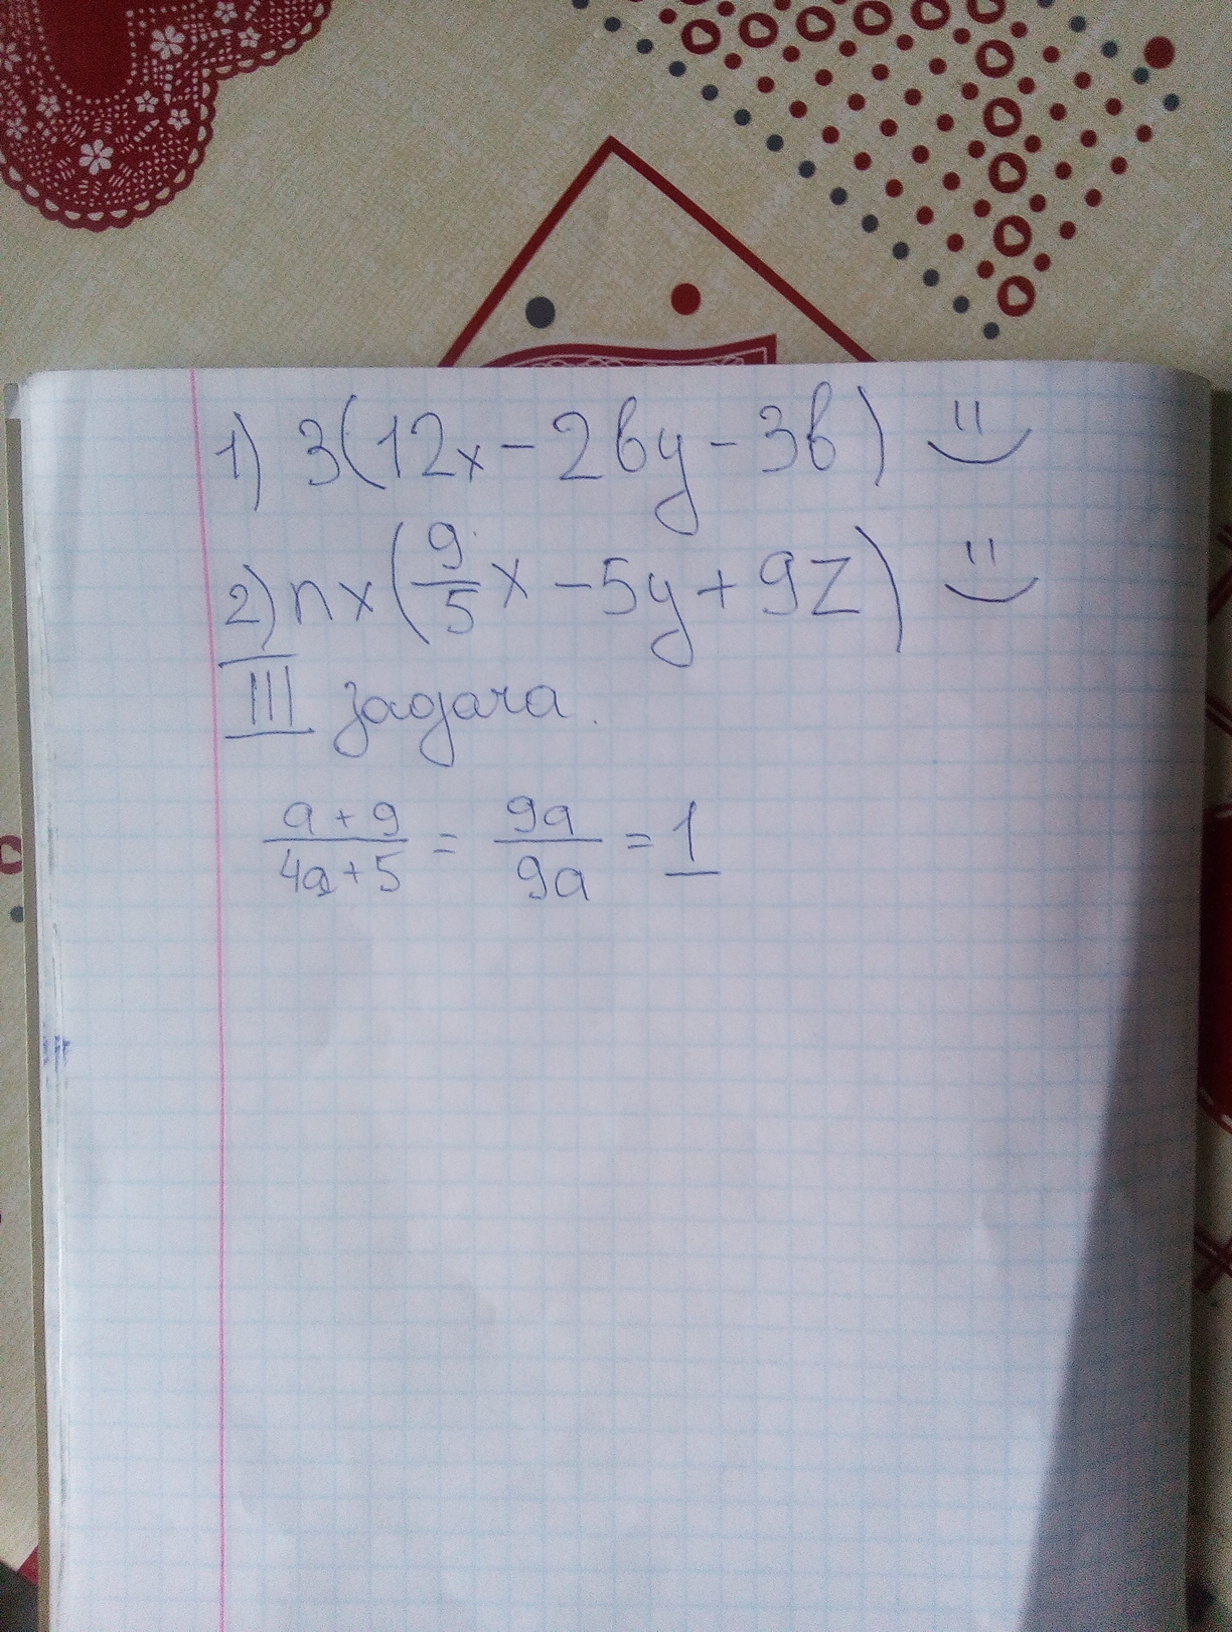 1) 3(12x - 2by - 3b)
2) nx(9/5 x - 5y + 9z)
III задача.
(a + 9)/(4a + 5) = 9a/9a = 1